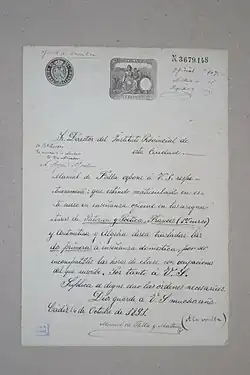 N. 3679148
S. Director del Instituto Provincial de
esta Ciudad.
Manuel de Falla expone á V. S. respe-
tuosamente: que estando matriculado en es-
te curso en enseñanza oficial en las asigna-
turas de Retórica y Poética, Francés (1er curso)
y Aritmética y Algebra desea trasladar las
dos primeras á enseñanza doméstica, por ser
incompatibles las horas de clase con ocupaciones
del que suscribe. Por tanto á V. S.
Suplica se digne dar las órdenes necesarias.
Dios guarde á V. S. muchos años.
Cádiz 16 Octubre de 1891.
Manuel de Falla y Matheu